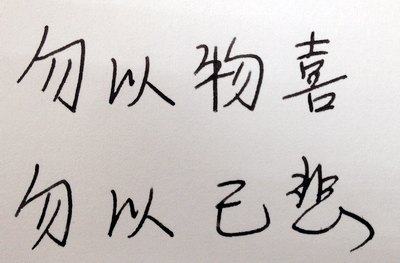 勿以物喜
勿以己悲